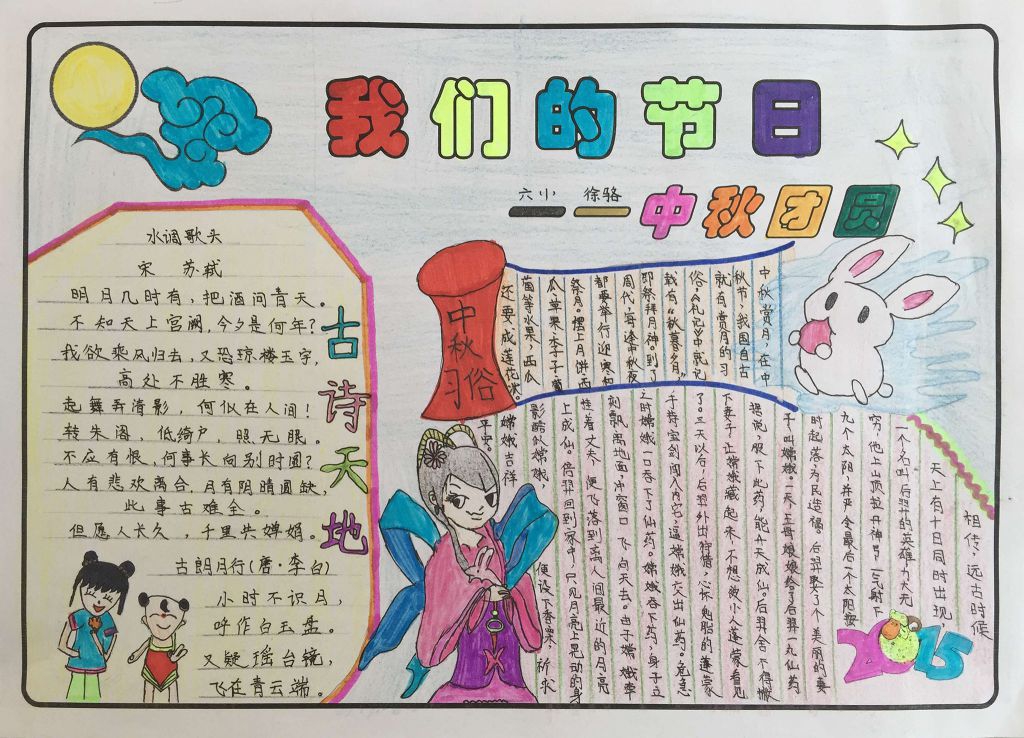 我们的节日
六小 徐骆
中秋团圆
古诗天地
水调歌头
宋 苏轼
明月几时有，把酒问青天。
不知天上宫阙，今夕是何年？
我欲乘风归去，又恐琼楼玉宇，
高处不胜寒。
起舞弄清影，何似在人间！
转朱阁，低绮户，照无眠。
不应有恨，何事长向别时圆？
人有悲欢离合，月有阴晴圆缺，
此事古难全。
但愿人长久，千里共婵娟。
古朗月行(唐·李白)
小时不识月，
呼作白玉盘。
又疑瑶台镜，
飞在青云端。
中秋习俗
中秋赏月，在中
秋节，我国自古
就有赏月的习
俗，《札记》中就记
载有“秋暮夕月”，
即祭拜月神。到了
周代，每逢中秋夜
都要举行迎寒和
祭月。摆上月饼西
瓜苹果，李子葡
萄等水果，西瓜
还要成莲花状。
相传，远古时候
天上有十日同时出现，
一个名叫后羿的英雄，力大无
穷，他上山顶拉开神弓一气射下
九个太阳，并严令最后一个太阳按
时起落，为民造福。后羿娶了个美丽的妻
子，叫嫦娥。一天，王母娘娘给了后羿一丸仙药
据说，服下此药，能升天成仙。后羿舍不得撇
下妻子，让嫦娥藏起来，不想被小人蓬蒙看见
了。三天以后，后羿外出狩猎，心怀鬼胎的蓬蒙
手持宝剑闯入内宅，逼嫦娥交出仙药。危急
之时嫦娥一口吞下了仙药。嫦娥吞下药，身子立
刻飘离地面、冲窗口飞向天去。由于嫦娥牵
挂着丈夫，便飞落到离人间最近的月亮
上成仙。后羿回到家中，只见月亮上晃动的身
影酷似嫦娥，便设下香案，祈求
嫦娥吉祥
平安。
2015